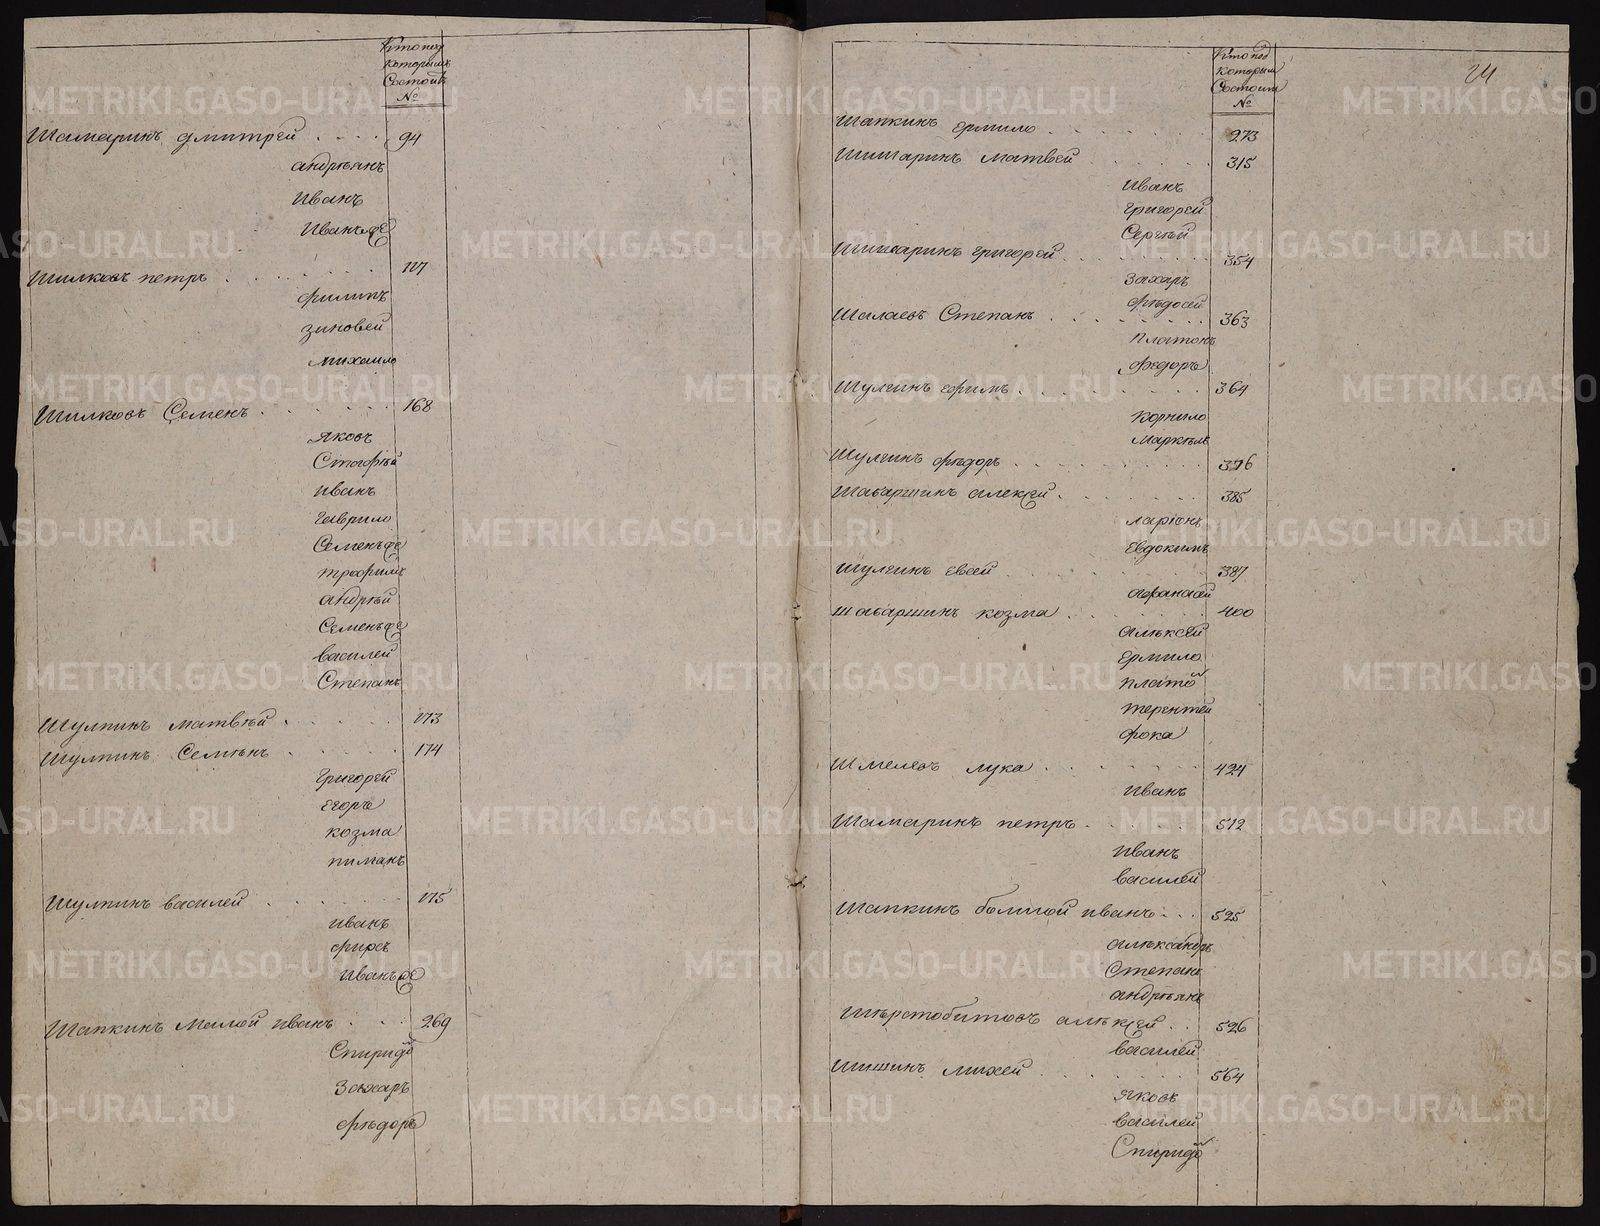 Кто под
которымъ
Состоитъ
№
Шамаринъ дмитрей 94
андрѣянъ
Иванъ
Иванъ же
Шилковъ петръ 117
филипъ
зиновей
михаило
Шилковъ Семенъ 168
яковъ
иванъ
гаврило
Семенъ же
трофимъ
андрѣй
Семенъ же
василей
Степанъ
Шулпинъ матвѣй 173
Шулпинъ Семѣнъ 174
григорей
егоръ
козма
пиманъ
Шулпинъ василей 175
иванъ
фирсъ
иванъ же
Шапкинъ Малой иванъ 269
Спиридо
Захаръ
фѣдоръ
Кто под
которым
Состоит
№
24
Шапкинъ ермило 273
Шишаринъ матвей 315
иванъ
григорей
Сергѣй
Шишаринъ григорей 354
Захаръ
фѣдосей
Шалаевъ Степанъ 363
платонъ
федоръ
Шулгинъ ефимъ 364
корнило
маркѣлъ
Шулгинъ фѣдоръ 376
Шабаршинъ алексей 385
ларионъ
Евдокимъ
Шулгинъ евсей 387
афанасей
шабаршинъ козма 400
алѣксей
ермило
плато
терентей
фока
Шмелевъ лука 424
иванъ
Шамаринъ петръ 512
иванъ
василей
Шапкинъ болшой иванъ 525
алѣксандръ
Степанъ
андрѣянъ
Шѣрстобитовъ алѣксей 526
василей
Шишинъ михей 564
яковъ
василей
Спиридо
METRIKI.GASO-URAL.RU